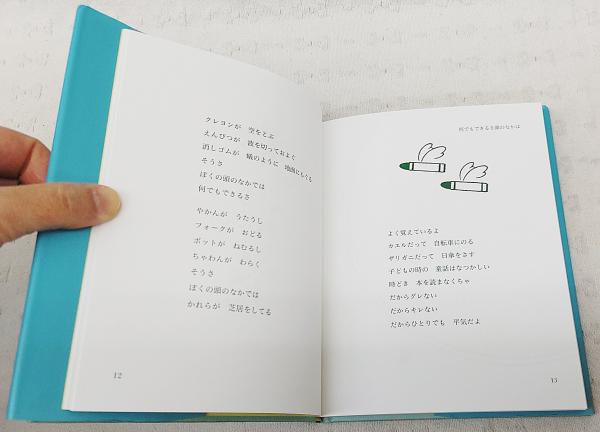 クレヨンが 空をとぶ
えんぴつが 波を切っておよぐ
消しゴムが 蟻のように 地面にもぐる
そうさ
ぼくの頭のなかでは
何でもできるさ
やかんが うたうし
フォークが おどる
ポットが ねむるし
ちゃわんが わらく
そうさ
ぼくの頭のなかでは
かれらが 芝居をしてる
12
何でもできる立頭のなかは
よく覚えているよ
カエルだって 自転車にのる
ザリガニだって 日傘をさす
子どもの時の 童話はなつかしい
時どき 本を読まなくちゃ
だからグレない
だからキレない
だからひとりでも 平気だよ
13